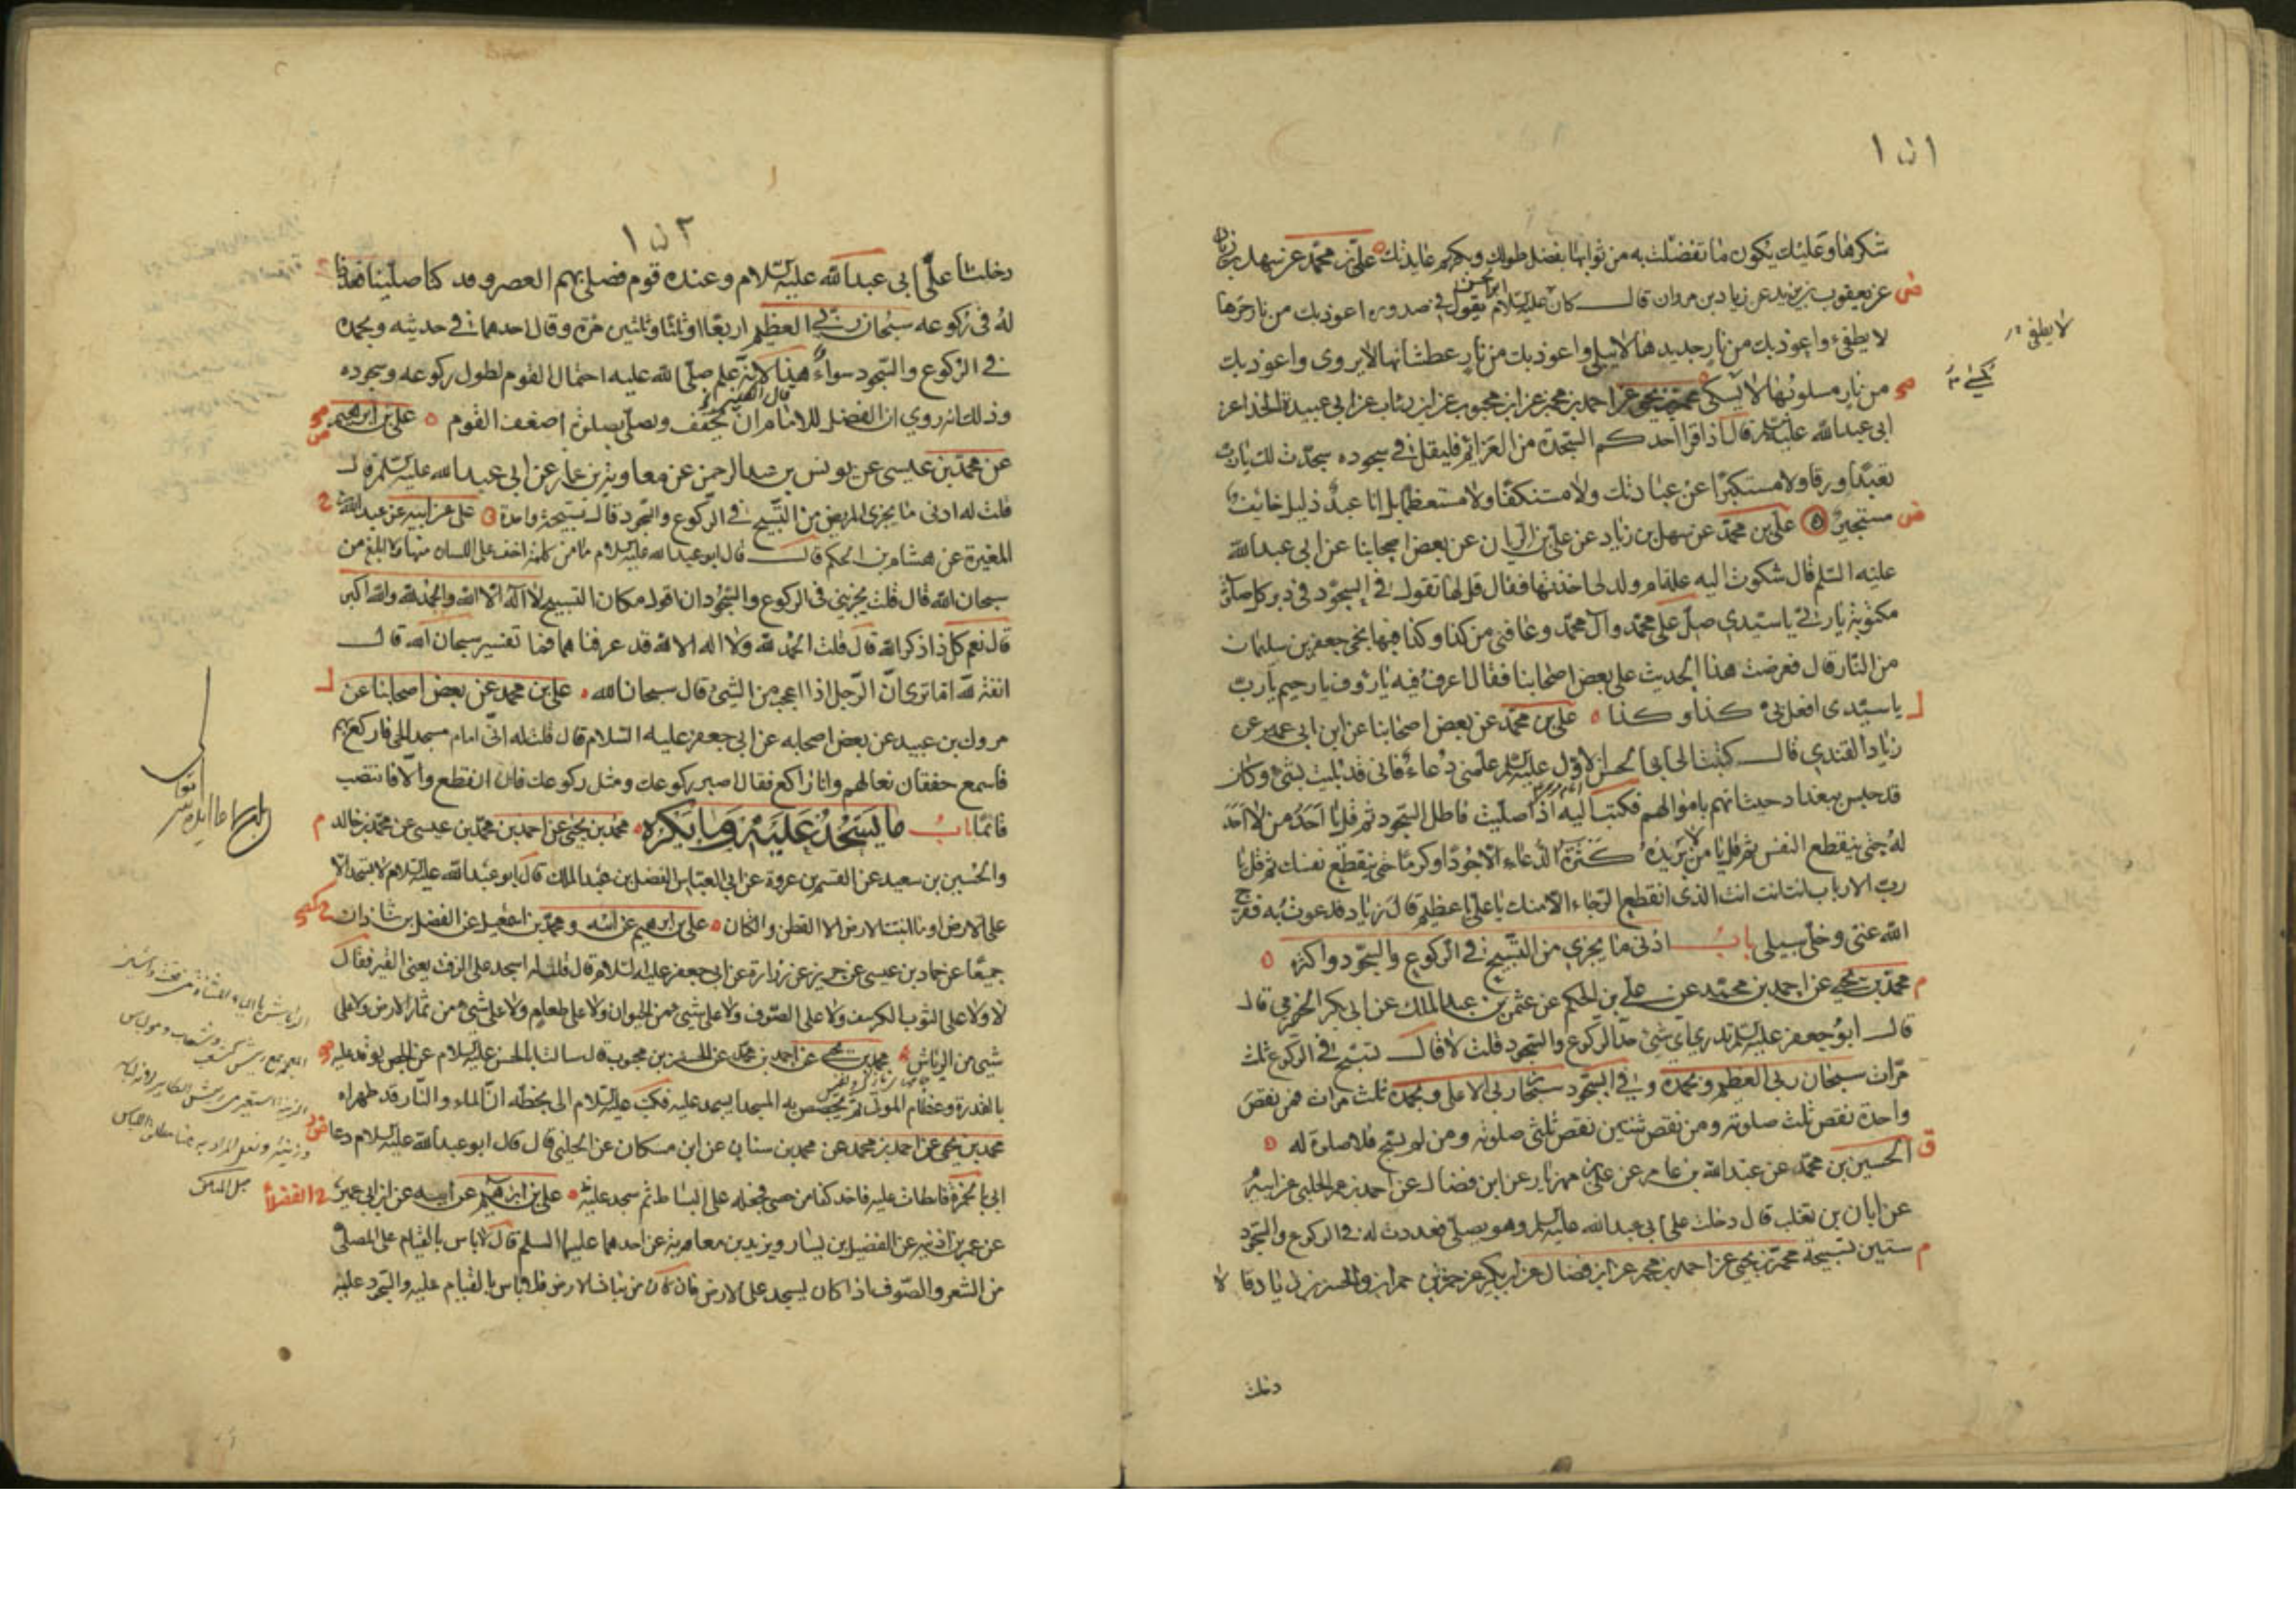 ١٥١
شكرها وعليك يكون ما تفضلت به من ثوابها بفضل طولك وبكرم عايدتك علي بن محمد عن سهل بن زياد
عن يعقوب بن يزيد عن زياد بن مروان قال كان ابو الحسن عليه السلام يقول في سجوده اعوذ بك من نار حرها
لا يطفى
لا يطفىء واعوذ بك من نار جديدها لا يبلى واعوذ بك من نار عطشانها لا يروى واعوذ بك
من نار مسلوبها لا يكسى محمد بن يحيى عن احمد بن محمد عن ابن محبوب عن ابن رئاب عن ابي عبيدة الحذاء عن
ابي عبد الله عليه السلم قال اذا قرا احدكم السجدة من العزائم فليقل في سجوده سجدت لك يا رب
تعبدا ورقا ولا مستكبرا عن عبادتك ولا مستنكفا ولا مستعظما بل انا عبد ذليل خايف
مستجير علي بن محمد عن سهل بن زياد عن علي بن الريان عن بعض اصحابنا عن ابي عبد الله
عليه السلم قال شكوت اليه علة ام ولد لي اخذتها فقال قل لها تقول في السجود في دبر كل صلوة
مكتوبة يا ربي يا سيدي صل على محمد وآل محمد وعافني من كذا وكذا فبها نجى جعفر بن سليمان
من النار قال فعرضت هذا الحديث على بعض اصحابنا فقال اعرف فيه يا رؤف يا رحيم يا رب
يا سيدي افعل بي كذا وكذا علي بن محمد عن بعض اصحابنا عن ابن ابي عمير عن
زياد القندي قال كتبت الى ابي الحسن الاول عليه السلم علمني دعاء فاني قد بليت بشيء وكان
قد حبس ببغداد حيث اتهم باموالهم فكتب اليه اذا صليت فاطل السجود ثم قل يا احد من لا احد
له حتى ينقطع النفس ثم قل يا من لا يزيده كثرة الدعاء الا جودا وكرما حتى ينقطع نفسك ثم قل يا
رب الارباب انت انت انت الذي انقطع الرجاء الا منك يا علي يا عظيم قال زياد فدعوت به ففرج
الله عني وخلى سبيلي باب ادنى ما يجزي من التسبيح في الركوع والسجود واكثره
محمد بن يحيى عن احمد بن محمد عن علي بن الحكم عن عثمن بن عبد الملك عن ابي بكر الحضرمي قال
قال ابو جعفر عليه السلم تدري اي شيء حد الركوع والسجود قلت لا قال تسبح في الركوع ثلث
مرات سبحان ربي العظيم وبحمده وفي السجود سبحان ربي الاعلى وبحمده ثلث مرات فمن نقص
واحدة نقص ثلث صلوته ومن نقص ثنتين نقص ثلثي صلوته ومن لم يسبح فلا صلوة له
الحسين بن محمد عن عبد الله بن عامر عن علي بن مهزيار عن ابن فضال عن احمد بن عمر الحلبي عن ابيه
عن ابان بن تغلب قال دخلت على ابي عبد الله عليه السلم وهو يصلي فعددت له في الركوع والسجود
ستين تسبيحة محمد بن يحيى عن احمد بن محمد عن ابن فضال عن ابن بكير عن حمزة بن حمران والحسن بن زياد قالا
دخلت
١٥٢
دخلنا على ابي عبد الله عليه السلام وعنده قوم فصلى بهم العصر وقد كنا صلينا فعددنا
له في ركوعه سبحان ربي العظيم اربعا او ثلثا وثلثين مرة وقال احدهما في حديثه وبحمده
في الركوع والسجود سواء هذا لانه علم صلى الله عليه احتمال القوم لطول ركوعه وسجوده
وذلك انه روي ان الفضل للامام ان يخفف ويصلي بصلوة اضعف القوم علي بن ابرهيم
عن محمد بن عيسى عن يونس بن عبد الرحمن عن معاوية بن عمار عن ابي عبد الله عليه السلم قال
قلت له ادنى ما يجزي المريض من التسبيح في الركوع والسجود قال تسبيحة واحدة علي عن ابيه عن عبد الله بن
المغيرة عن هشام بن الحكم قال قال ابو عبد الله عليه السلام ما من كلمة اخف على اللسان منها ولا ابلغ من
سبحان الله قال قلت يجزيني في الركوع والسجود ان اقول مكان التسبيح لا اله الا الله والحمد لله والله اكبر
قال نعم كل ذا ذكر الله قال قلت الحمد لله ولا اله الا الله قد عرفناهما فما تفسير سبحان الله قال
انفة لله اما ترى ان الرجل اذا اعجب من الشيء قال سبحان الله علي بن محمد عن بعض اصحابنا عن
مروك بن عبيد عن بعض اصحابه عن ابي جعفر عليه السلام قال قلت له اني امام مسجد الحي فاركع بهم
فاسمع خفقان نعالهم وانا راكع فقال اصبر ركوعك ومثل ركوعك فان انقطع والا فانتصب
قائما باب ما يسجد عليه وما يكره محمد بن يحيى عن احمد بن محمد بن عيسى عن محمد بن خالد
والحسين بن سعيد عن القسم بن عروة عن ابي العباس الفضل بن عبد الملك قال قال ابو عبد الله عليه السلام لا يسجد الا
على الارض او ما انبتت الارض الا القطن والكتان علي بن ابرهيم عن ابيه ومحمد بن اسمعيل عن الفضل بن شاذان
جميعا عن حماد بن عيسى عن حريز عن زرارة عن ابي جعفر عليه السلام قال قلت له اسجد على الزفت يعني القير فقال
لا ولا على الثوب الكرسف ولا على الصوف ولا على شيء من الحيوان ولا على طعام ولا على شيء من ثمار الارض ولا على
شيء من الرياش محمد بن يحيى عن احمد بن محمد عن الحسن بن محبوب قال سالت ابا الحسن عليه السلام عن الجص يوقد عليه
بالعذرة وعظام الموتى ثم يجصص به المسجد ايسجد عليه فكتب عليه السلام الي بخطه ان الماء والنار قد طهراه
محمد بن يحيى عن احمد بن محمد عن محمد بن سنان عن ابن مسكان عن الحلبي قال قال ابو عبد الله عليه السلام دعا
ابي بالخمرة فابطات عليه فاخذ كفا من حصى فجعله على البساط ثم سجد عليه علي بن ابرهيم عن ابيه عن ابن ابي عمير
عن عمر بن اذينه عن الفضيل بن يسار وبريد بن معاوية عن احدهما عليهما السلم قال لا باس بالقيام على المصلى
من الشعر والصوف اذا كان يسجد على الارض فان كان من نبات الارض فلا باس بالقيام عليه والسجود عليه